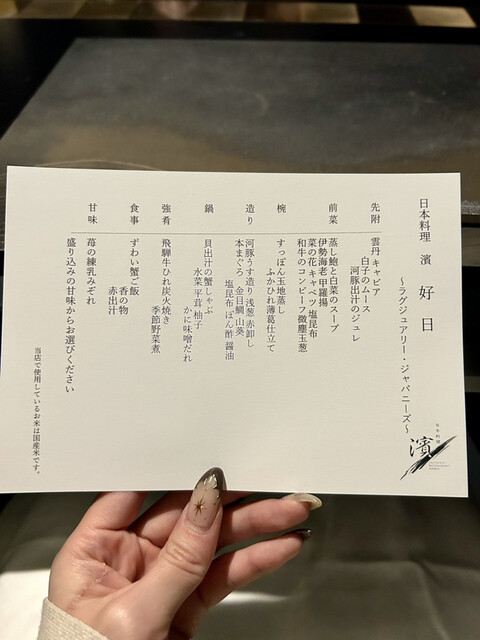 日本料理 濱 好 日
～ラグジュアリー・ジャパニーズ～
先附 雲丹 キャビア
白子のムース
河豚出汁のジュレ
前菜 蒸し鮑と白菜のスープ
伊勢海老 甲羅揚
菜の花 キャベツ 塩昆布
和牛のコンビーフ 微塵玉葱
椀 すっぽん玉地蒸し
ふかひれ薄葛仕立て
造り 河豚うす造り 浅葱 赤卸し
本まぐろ 金目鯛 山葵
塩昆布 ぽん酢 醤油
鍋 貝出汁の蟹しゃぶ
水菜 平茸 柚子
かに味噌だれ
強肴 飛騨牛ひれ炭火焼き
季節野菜煮
食事 ずわい蟹ご飯
香の物
赤出汁
甘味 苺の練乳みぞれ
盛り込みの甘味からお選びください
当店で使用しているお米は国産米です。
日本料理
濱